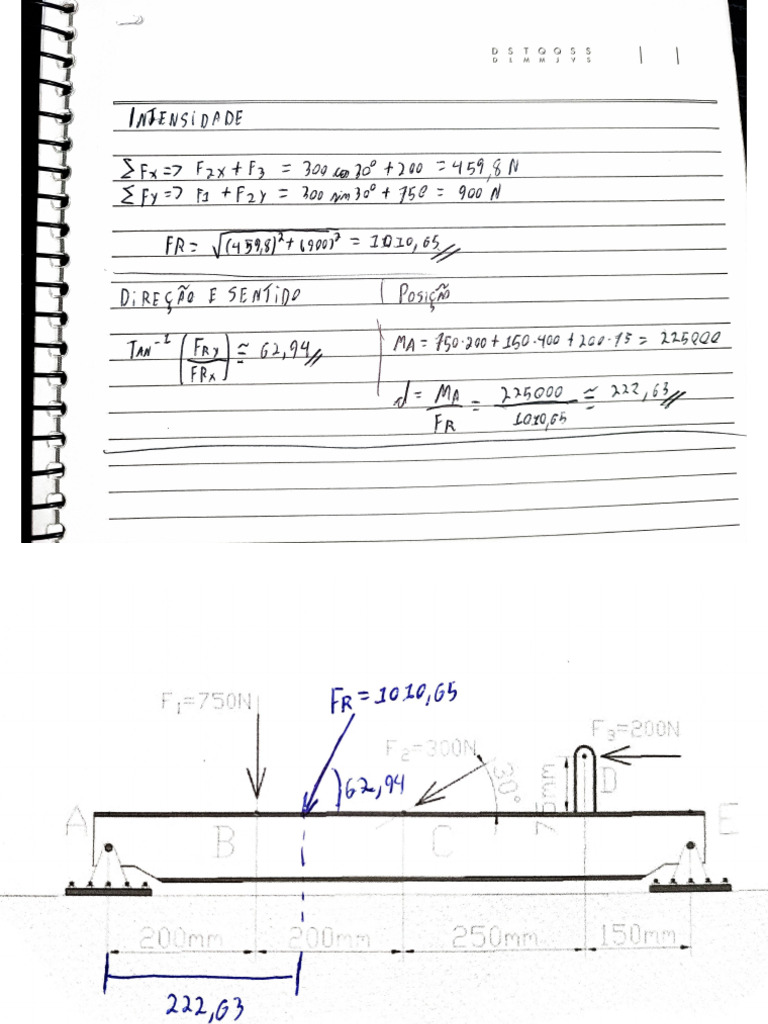 D S T Q Q S S
D L M M J V S
INTENSIDADE
ΣFx => F2x + F3 = 300 cos 30° + 200 = 459,8 N
ΣFy => F1 + F2y = 300 sin 30° + 750 = 900 N
FR = √(459,8)² + (900)² = 1010,65
DIREÇÃO E SENTIDO
POSIÇÃO
TAN⁻¹ (FRy / FRx) ≅ 62,94
MA = 750·200 + 150·400 + 200·75 = 225000
d = MA / FR = 225000 / 1010,65 ≅ 222,63
FR = 1010,65
F₁=750N
F₂=300N
F₃=200N
62,94
30°
75mm
D
A
B
C
E
200mm
200mm
250mm
150mm
222,63